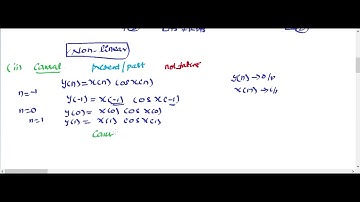 Non-linear
(ii) Causal present/past not future
y(n) = x(n) cos x(n)
y(n) → o/p
n=-1 y(-1) = x(-1) cos x(-1)
x(n) → i/p
n=0 y(0) = x(0) cos x(0)
n=1 y(1) = x(1) cos x(1)
Caus